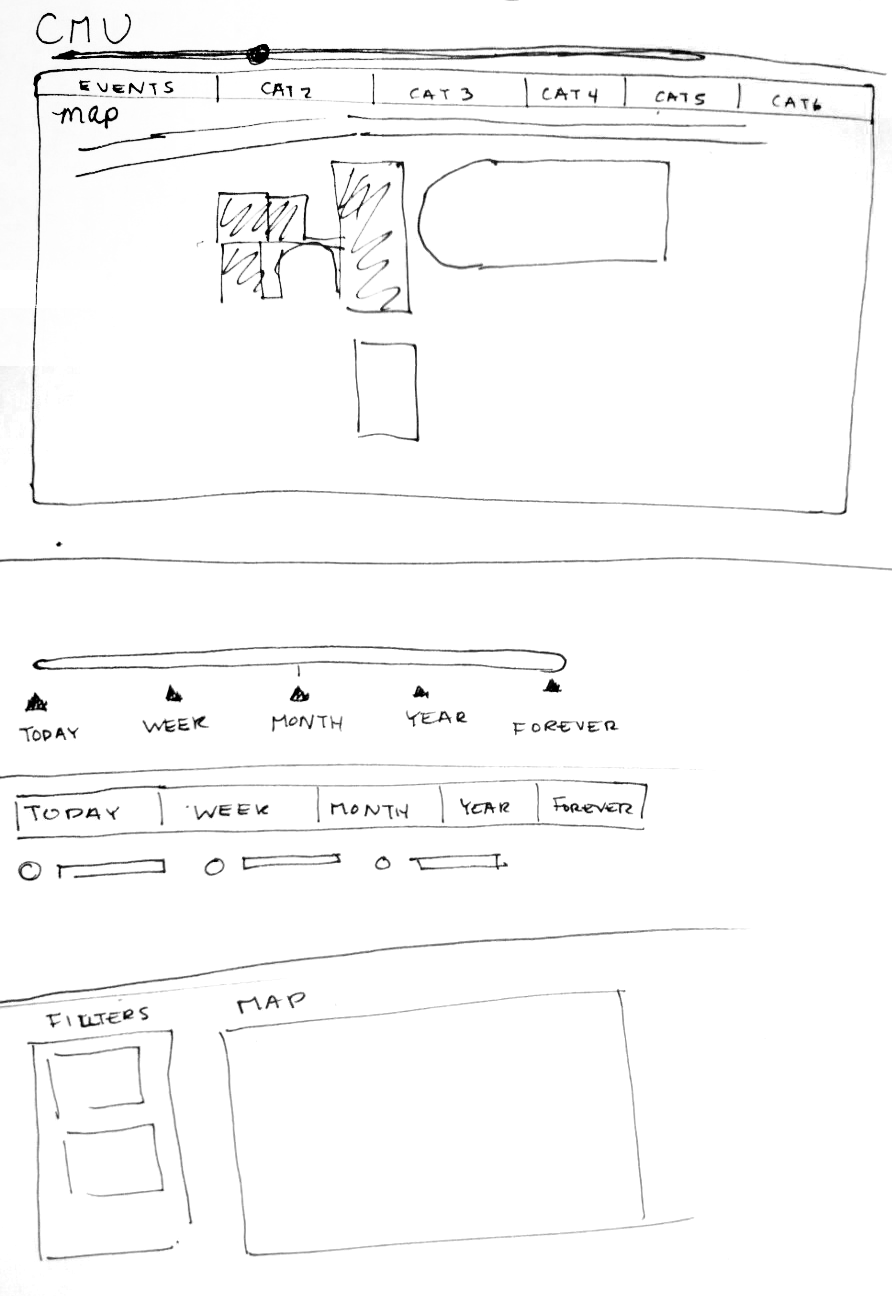 CMU
EVENTS CAT 2 CAT 3 CAT 4 CAT5 CAT6
map
TODAY WEEK MONTH YEAR FOREVER
TODAY WEEK MONTH YEAR FOREVER
FILLTERS MAP